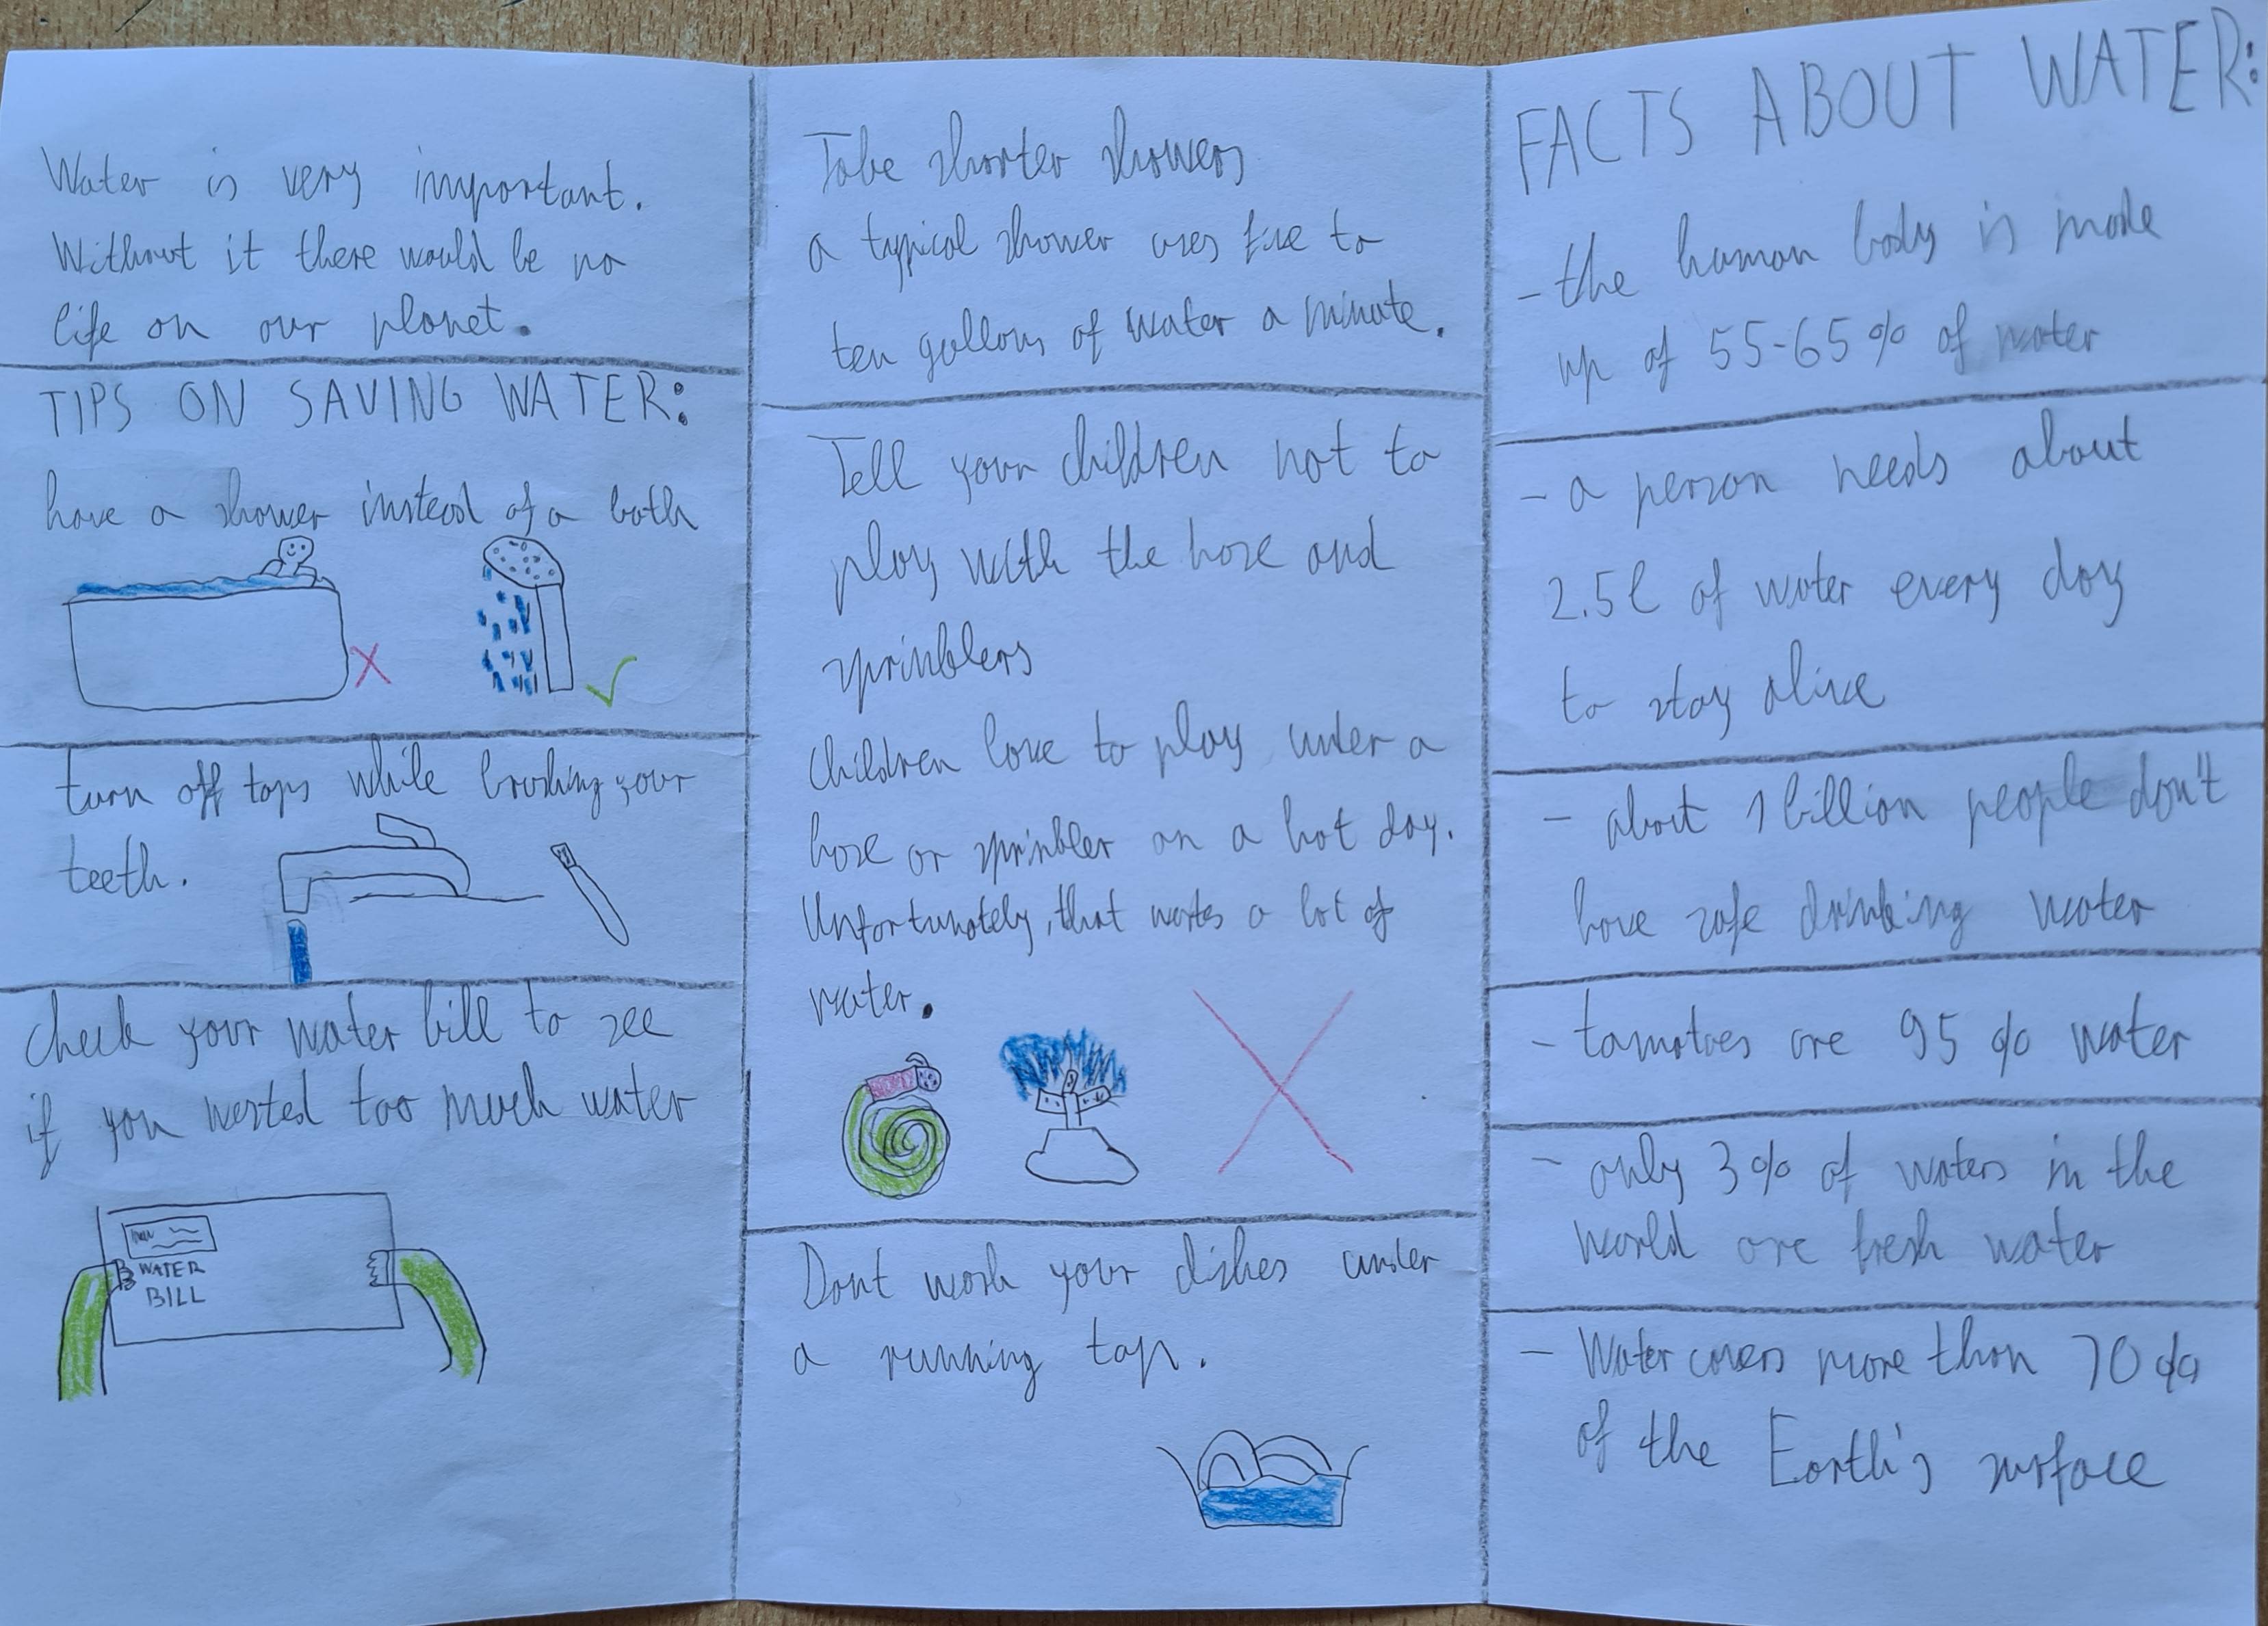 Water is very important.
Without it there would be no
life on our planet.
TIPS ON SAVING WATER:
have a shower instead of a bath
turn off taps while brushing your
teeth.
check your water bill to see
if you wested too much water
WATER
BILL
Take shorter showers
a typical shower uses five to
ten gallons of water a minute.
Tell your children not to
play with the hose and
sprinklers
Children love to play under a
hose or sprinkler on a hot day.
Unfortunately, that wastes a lot of
water.
Dont wash your dishes under
a running tap.
FACTS ABOUT WATER:
- the human body is made
up of 55-65% of water
- a person needs about
2.5l of water every day
to stay alive
- about 1 billion people don't
have safe drinking water
- tomatoes are 95% water
- only 3% of waters in the
world are fresh water
- Water covers more than 70%
of the Earth's surface